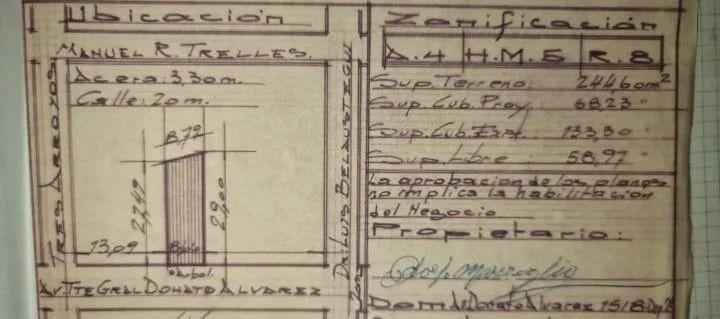 Ubicación
MANUEL R. TRELLES.
TRES ARROYOS
Dr. LUIS BELAUSTEGUI
Acera: 3,30 m.
Calle: 20 m.
8,72
13,09
árbol.
AV. TTE GRAL. DONATO ALVAREZ
Zonificación
A.4 H.M.5 R.8
Sup. Terreno: 244,60 m²
Sup. Cub. Proy: 68,23 "
Sup. Cub. Exist: 133,30 "
Sup. Libre: 58,97 "
La aprobacion de los planos
no implica la habilitacion
del Negocio
Propietario:
Dom. Av. Donato Alvarez 1518-